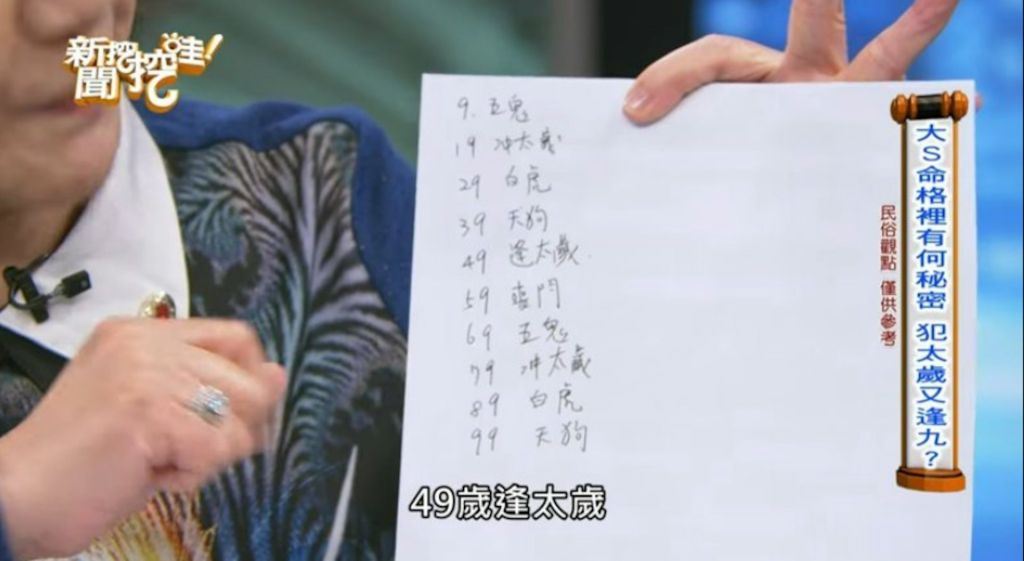 新聞挖挖哇!
9. 五鬼
19 冲太歲
29 白虎
39 天狗
49 逢太歲.
59 喪門
69 五鬼
79 冲太歲
89 白虎
99 天狗
大S命格裡有何秘密 犯太歲又逢九?
民俗觀點 僅供參考
49歲逢太歲